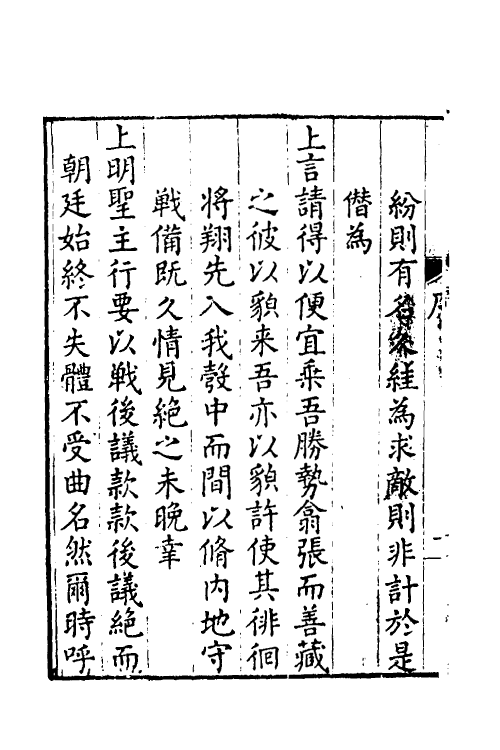 紛則有名經為求敵則非計於是
僭為
上言請得以便宜乘吾勝勢翕張而善藏
之彼以貌来吾亦以貌許使其徘徊
将翔先入我彀中而間以脩内地守
戰備既久情見絶之未晚幸
上明聖主行要以戰後議款款後議絶而
朝廷始終不失體不受曲名然爾時呼
二